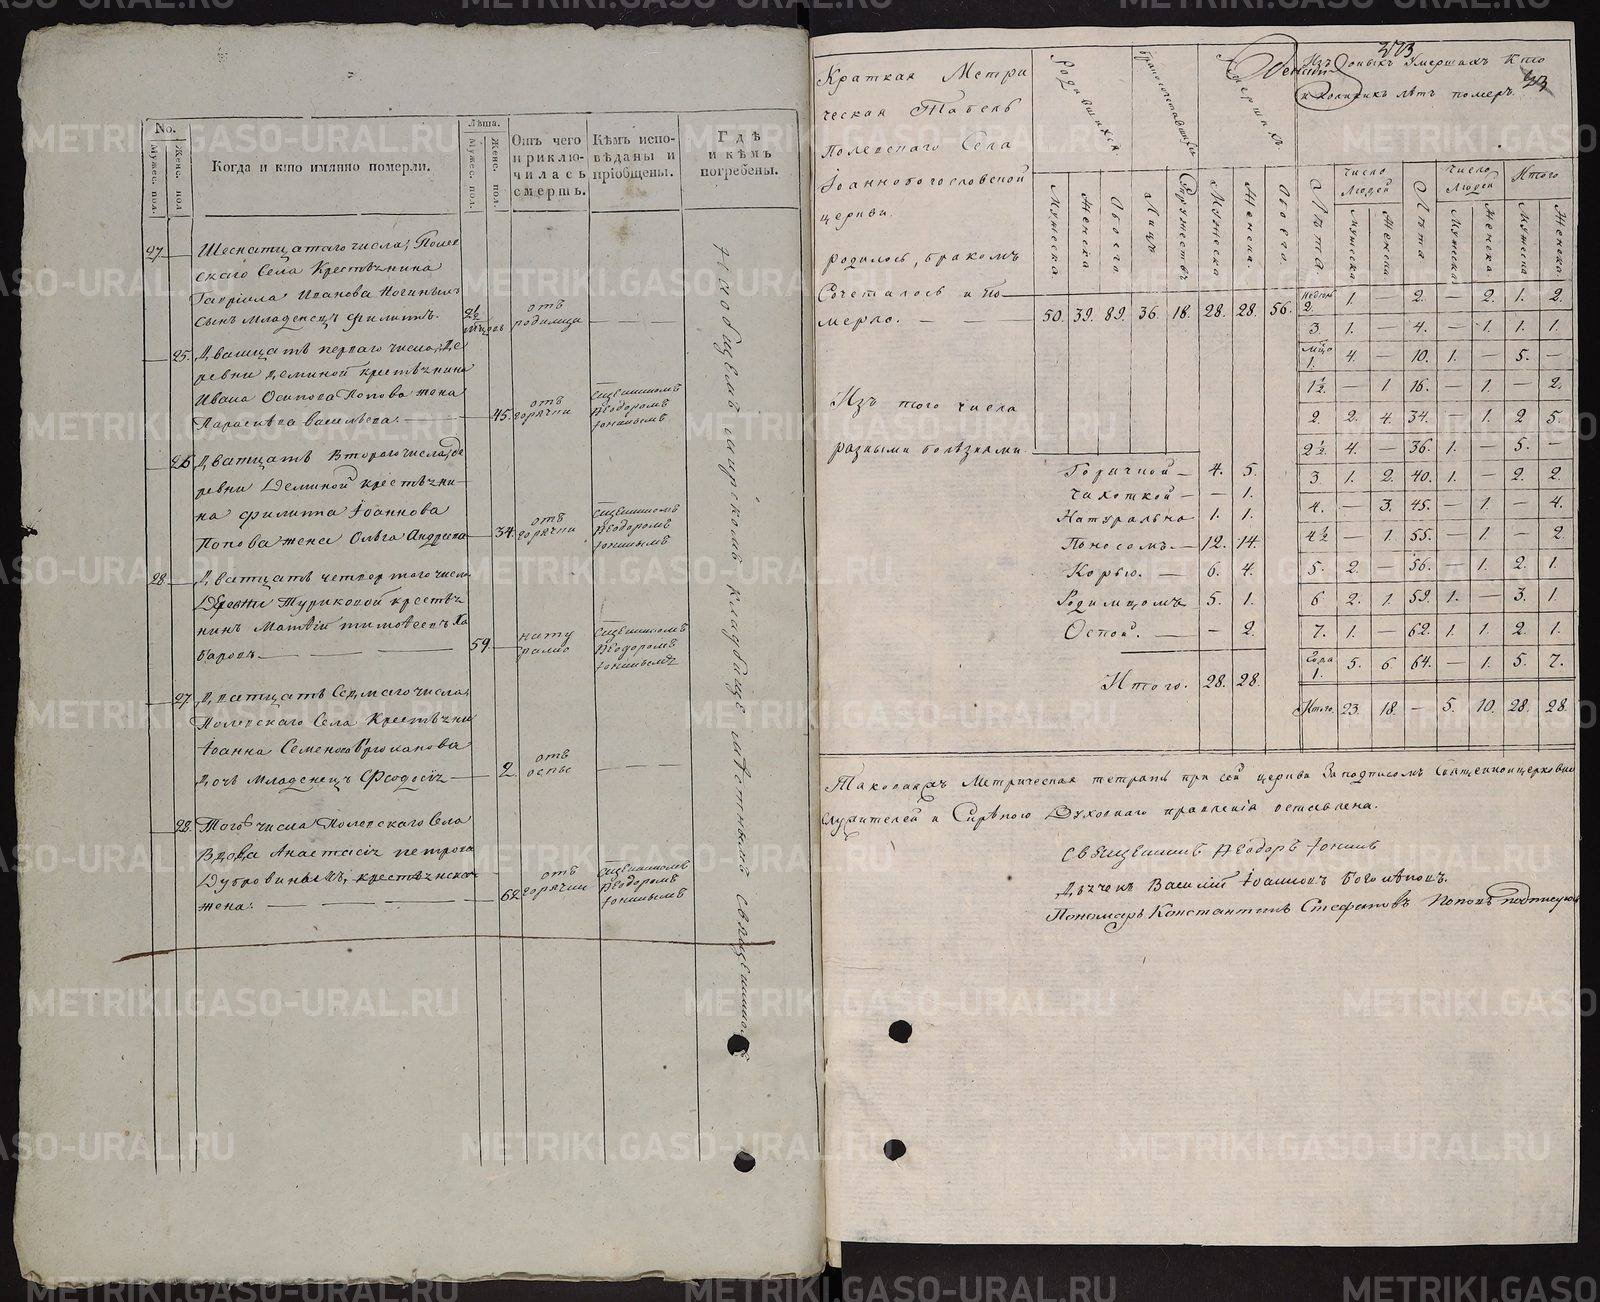 No.
Мужес. пол.
Женс. пол
Когда и кто имянно померли.
Лѣта.
Мужес. пол.
Женс. пол.
Отъ чего приклю-чилась смерть.
Кѣмъ испо-вѣданы и пріобщены.
Гдѣ и кѣмъ погребены.
27.
Шеснатцатаго числа, Полев
скаго Села Крестьянина
Гавріила Иванова
Сынъ младенецъ Филиппъ.
2½
отъ
родимца
25.
Дватцать перваго числа, Де
ревни Деминой крестьянина
Ивана Осипова Попова жена
Параскева Васильева.
45.
отъ
горячки
Священникомъ
Ѳеодоромъ
Іонинымъ
26.
Дватцать Втораго числа, де
ревни Деминой крестьяни
на Филиппа Іоаннова
Попова жена Ольга Андреева
34.
отъ
горячки
Священникомъ
Ѳеодоромъ
Іонинымъ
28.
Дватцать четвертаго числа
Деревни Туриковой крестья
нинъ Матвій Тимоѳеевъ
59.
нату
рално
Священникомъ
Ѳеодоромъ
Іонинымъ
27.
Дватцать Седмаго числа,
Полевскаго Села Крестьяни
Іоанна Семенова
Дочь младенецъ Ѳеодосія
2.
отъ
оспы
28.
Того числа Полевскаго Села
Вдова Анастасія петрова
Дубровиныхъ, крестьянская
жена.
62
отъ
горячки
Священникомъ
Ѳеодоромъ
Іонинымъ
На общемъ кладбище мѣстнымъ священникомъ
373
Краткая Метри
ческая Табель
Полевскаго Села
Іоаннобогословской
церкви.
родилось, бракомъ
Сочеталось и по
мерло.
Родившихся
бракосочетавшихся
Умершихъ
Мужеска.
Женска
Обоего
Лицъ
Супружествъ
Мужеска
Женска.
Обоего.
50. 39. 89. 36. 18. 28. 28. 56.
Изъ того числа
разными болѣзнями.
Горячкой — 4. 5.
Чахоткой — — 1.
Натурально 1. 1.
Поносомъ. — 12. 14.
Корью. — 6. 4.
Родимцомъ 5. 1.
Оспой. — — 2.
Итого. 28. 28.
Изъ оныхъ Умершихъ Кто
и коликихъ лѣтъ померъ.
Лѣта
число людей
Мужеска
Женска
Лѣта
число людей
Мужеска
Женска
Итого
Мужеска
Женска.
2. 1. — 2. — 2. 1. 2.
3. 1. — 4. — 1. 1. 1.
1. 4. — 10. 1. — 5. —
1½ — 1 16. — 1 — 2.
2. 2. 4. 34. — 1. 2 5.
2½. 4. — 36. 1. — 5. —
3 1. 2. 40. 1. — 2. 2.
4. — 3. 45. — 1. — 4.
4½ — 1. 55. — 1 — 2.
5. 2 — 56. — 1. 2. 1.
6 2. 1. 59. 1. — 3. 1.
7. 1. — 62. 1. 1. 2. 1.
Года 1. 5. 6 64. — 1. 5. 7.
Итого. 23. 18. — 5. 10. 28. 28.
Таковаяжъ Метрическая тетрать при сей церкви За подписомъ Священноцерковно
служителей и Духовнаго правленія оставлена.
Священникъ Ѳеодоръ Іонинъ
Дьячекъ Василій Іоанновъ Боголѣповъ.
Пономарь Константинъ Стефановъ Поповъ подписуюсь
METRIKI.GASO-URAL.RU